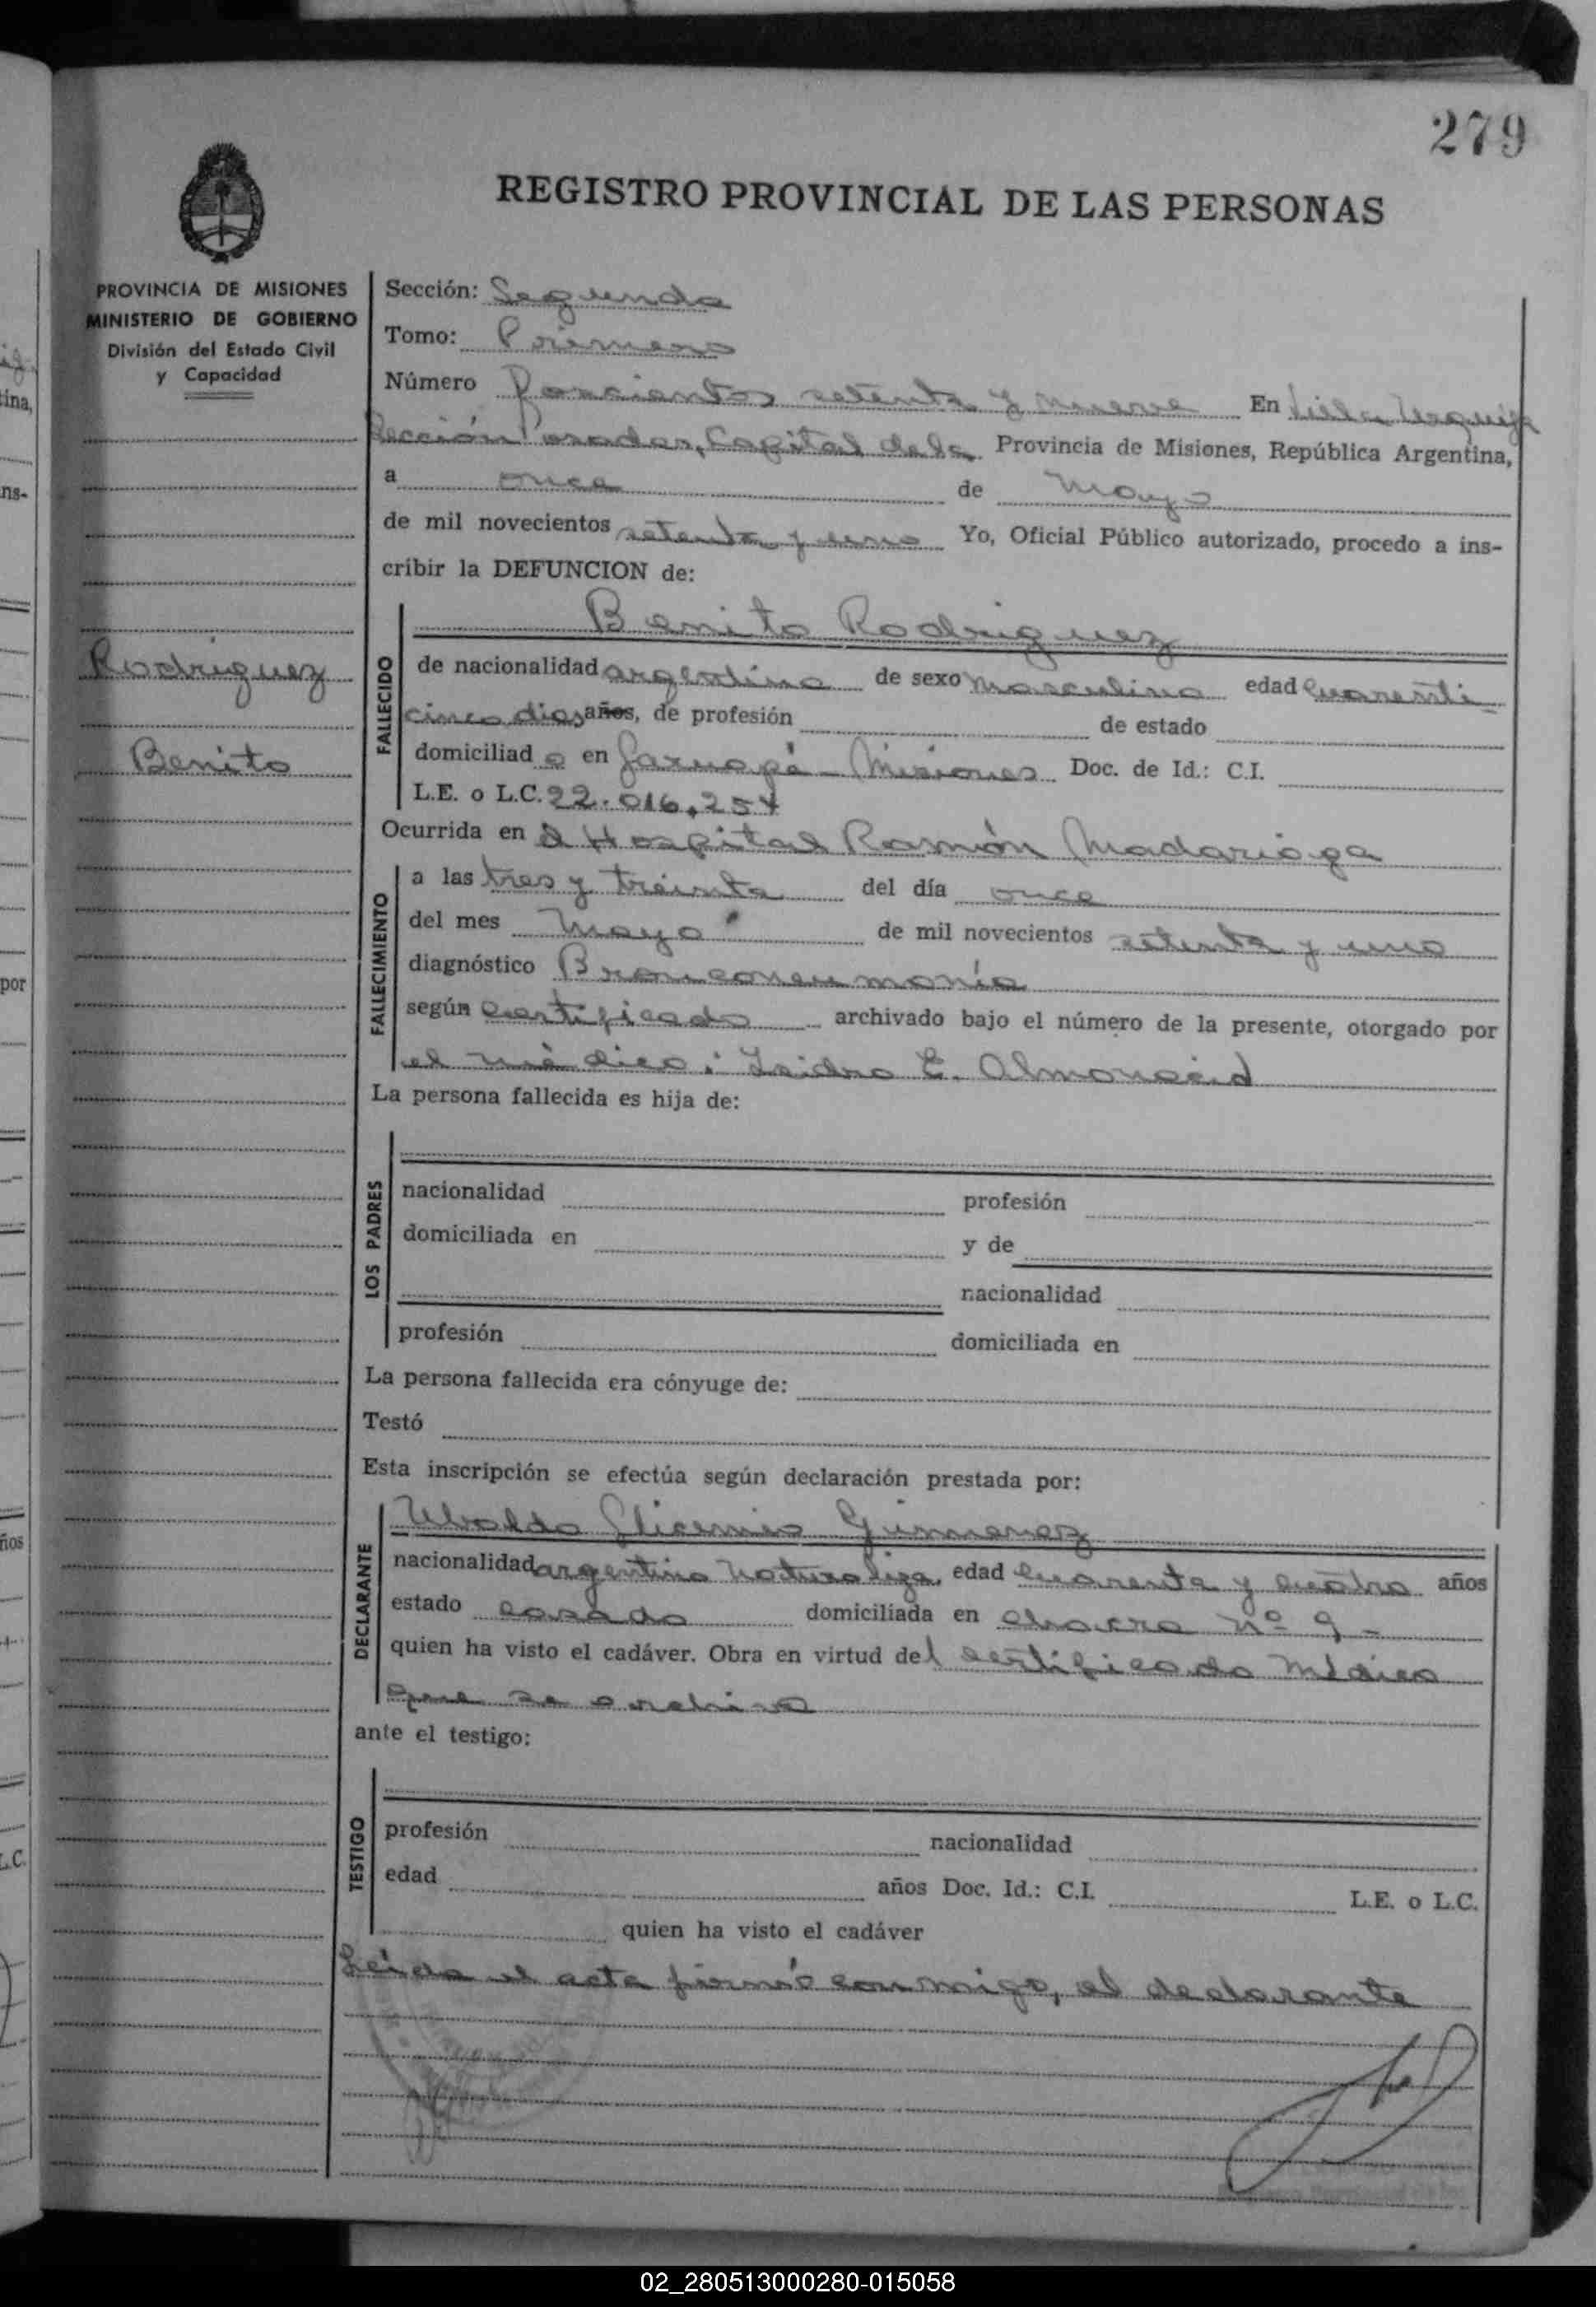 279
REGISTRO PROVINCIAL DE LAS PERSONAS
PROVINCIA DE MISIONES
MINISTERIO DE GOBIERNO
División del Estado Civil
y Capacidad
Rodriguez
Benito
Sección: Segunda
Tomo: Primero
Número Doscientos setenta y nueve En Villa Urquiza
Sección Posadas, Capital de la Provincia de Misiones, República Argentina,
a once de Mayo
de mil novecientos setenta y uno Yo, Oficial Público autorizado, procedo a ins-
cribir la DEFUNCION de:
FALLECIDO
Benito Rodriguez
de nacionalidad argentina de sexo masculino edad Cuarenti
cinco dias años, de profesión de estado
domiciliad o en Garuapé - Misiones Doc. de Id.: C.I.
L.E. o L.C. 22.016.254
Ocurrida en el Hospital Ramón Madariaga
FALLECIMIENTO
a las tres y treinta del día once
del mes Mayo de mil novecientos setenta y uno
diagnóstico Bronconeumonía
según certificado archivado bajo el número de la presente, otorgado por
el médico: Isidro E. Almonacid
La persona fallecida es hija de:
LOS PADRES
nacionalidad profesión
domiciliada en y de
nacionalidad
profesión domiciliada en
La persona fallecida era cónyuge de:
Testó
Esta inscripción se efectúa según declaración prestada por:
DECLARANTE
Ubaldo Glicerio Gimenez
nacionalidad argentino naturaliza. edad Cuarenta y cuatro años
estado casado domiciliada en chacra Nº 9 -
quien ha visto el cadáver. Obra en virtud del certificado médico
que se archiva
ante el testigo:
TESTIGO
profesión nacionalidad
edad años Doc. Id.: C.I. L.E. o L.C.
quien ha visto el cadáver
Leída el acta firmó conmigo, el declarante
02_280513000280-015058